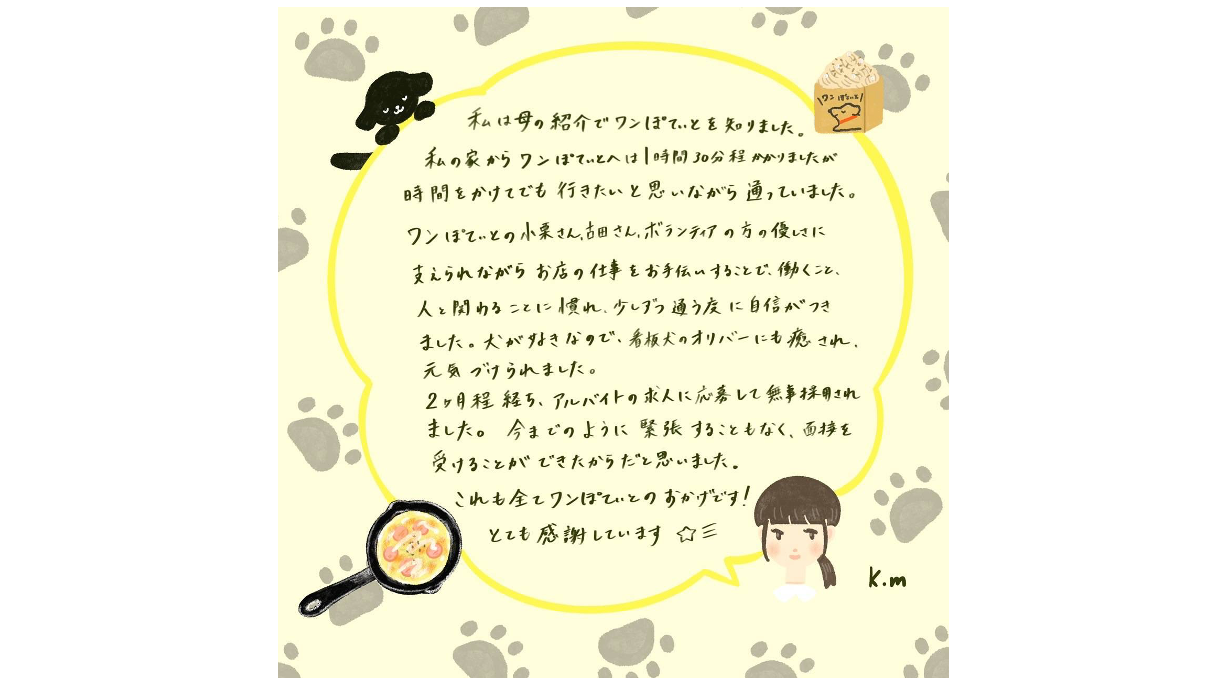 私は母の紹介でワンぽてぃとを知りました。
私の家からワンぽてぃとへは1時間30分程かかりましたが
時間をかけてでも行きたいと思いながら通っていました。
ワンぽてぃとの小栗さん、古田さん、ボランティアの方の優しさに
支えられながらお店の仕事をお手伝いすることで、働くこと、
人と関わることに慣れ、少しずつ通う度に自信がつき
ました。犬が好きなので、看板犬のオリバーにも癒され、
元気づけられました。
2ヶ月程経ち、アルバイトの求人に応募して無事採用され
ました。今までのように緊張することもなく、面接を
受けることができたからだと思いました。
これも全てワンぽてぃとのおかげです!
とても感謝しています☆彡
\ワンぽてぃと/
K.m